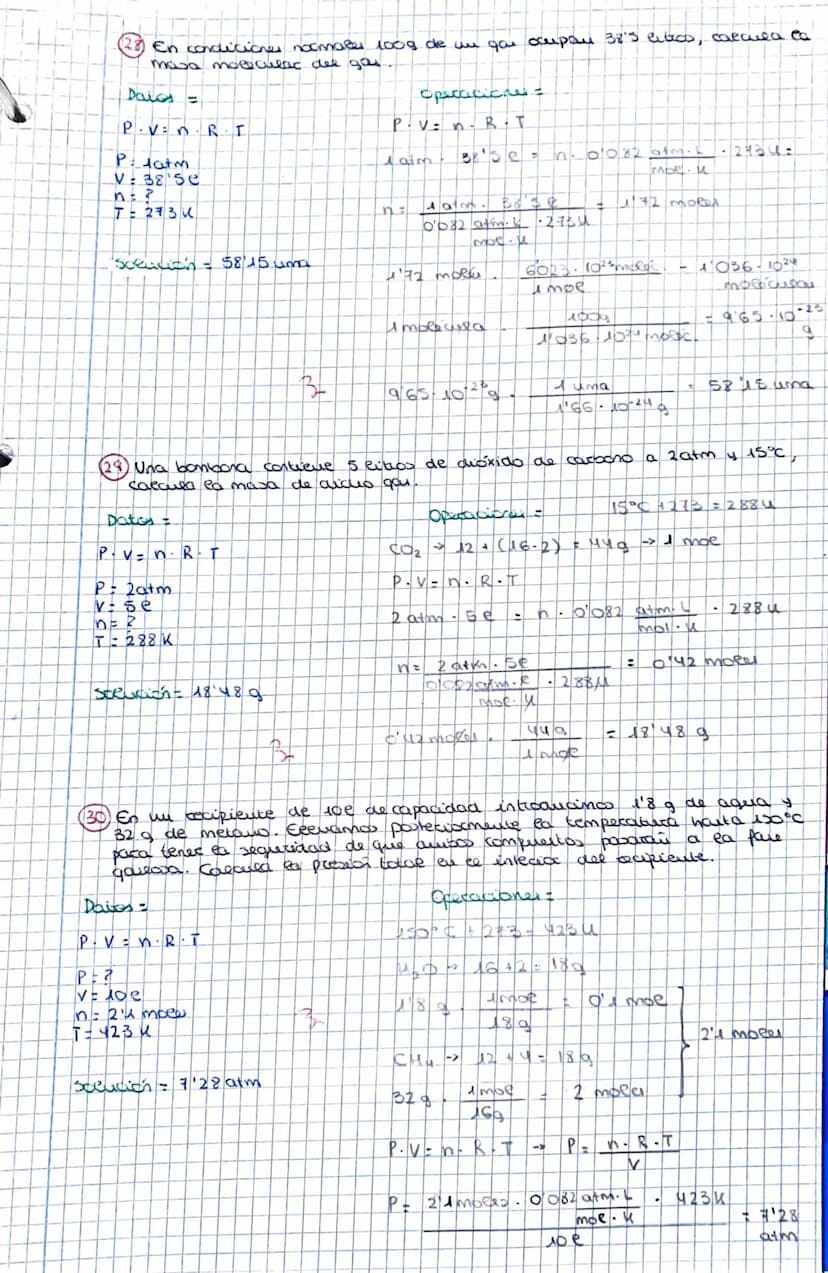 28 En condiciones normales 100g de un gas ocupan 38'5 litros, calcula la
masa molecular del gas.
Datos =
Operaciones =
P · V = n · R · T
P = 1atm
V = 38'5 l
n = ?
T = 273 K
Solución = 58'15 uma
P · V = n · R · T
1 atm · 38'5 l = n · 0'082 atm·L / mol·K · 273K =
n = 1 atm · 38'5 l / 0'082 atm·L / mol·K · 273K = 1'72 moles
1'72 moles · 6'023 · 10^23 moléc. / 1 mol = 1'036 · 10^24 moléculas
1 molécula · 100g / 1'036 · 10^24 moléc. = 9'65 · 10^-23 g
9'65 · 10^-23 g · 1 uma / 1'66 · 10^-24 g = 58'15 uma
29 Una bombona contiene 5 litros de dióxido de carbono a 2atm y 15ºC,
calcula la masa de dicho gas.
Datos =
Operaciones =
15ºC + 273 = 288K
P · V = n · R · T
P = 2atm
V = 5 l
n = ?
T = 288 K
Solución = 18'48 g
CO2 → 12 + (16·2) = 44g → 1 mol
P · V = n · R · T
2 atm · 5 l = n · 0'082 atm·L / mol·K · 288K
n = 2 atm · 5 l / 0'082 atm·l / mol·K · 288K = 0'42 moles
0'42 moles · 44g / 1 mol = 18'48 g
30 En un recipiente de 10l de capacidad introducimos 1'8 g de agua y
32 g de metano. Elevamos posteriormente la temperatura hasta 150ºC
para tener la seguridad de que ambos compuestos pasarán a la fase
gaseosa. Calcula la presión total en el interior del recipiente.
Datos =
Operaciones =
P · V = n · R · T
P = ?
V = 10 l
n = 2'1 moles
T = 423 K
Solución = 7'28 atm
150ºC + 273 = 423K
H2O → 16 + 2 = 18g
1'8 g · 1mol / 18g = 0'1 mol
CH4 → 12 + 4 = 18g
32 g · 1mol / 16g = 2 moles
2'1 moles
P · V = n · R · T → P = n · R · T / V
P = 2'1 moles · 0'082 atm·L / mol·K · 423K / 10 l = 7'28 atm